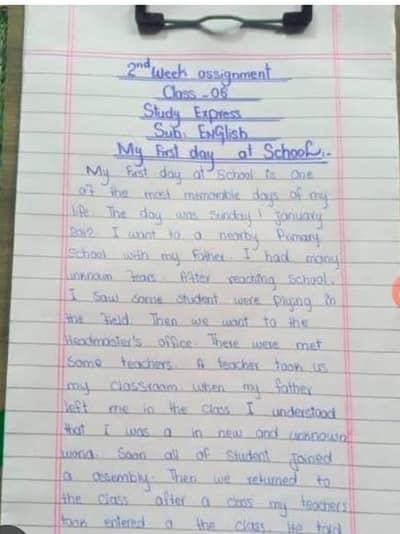 2nd Week assignment
Class - 08
Study Express
Sub: ENGlish
My First day at School:-
My First day at School is one
of the most memorable days of my
life. The day was Sunday 1 January
2012 I want to a nearby Primary
School with my father. I had many
unknown Fears. After reaching School.
I Saw some student were Plying in
the field. Then we want to the
Headmaster's office. There were met
Some teachers. A teacher took us
my classroom when my father
left me in the class I understood
that I was a in new and unknown
world. Soon all of student joined
a assembly. Then we returned to
the class after a class my teachers
took entered a the class. He told